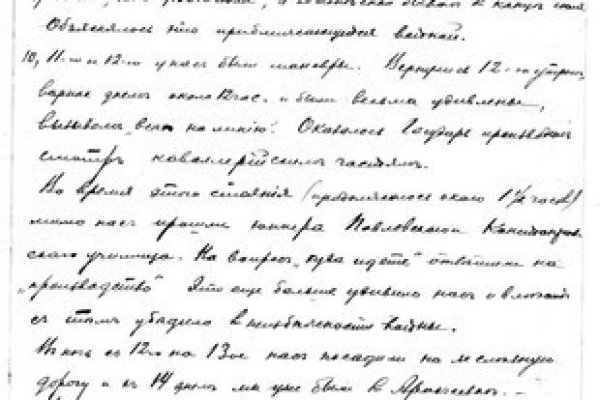 Объяснялось это приближающейся войной.
10, 11-го и 12-го у нас были маневры. Вернулись 12-го утром,
вернее днем около 12 час. и были весьма удивлены,
вызывом "всех на линию". Оказалось Государь производит
смотр кавалерийским частям.
Во время этого стояния (продолжалось около 1½ часов)
мимо нас прошли юнкера Павловского
ского училища. На вопрос "куда идете" ответили на
"производство" Это еще больше удивило нас и
с тем убедило в неизбежности войны.
В ночь с 12-го на 13-ое нас посадили на железную
дорогу и в 14 днем мы уже были в